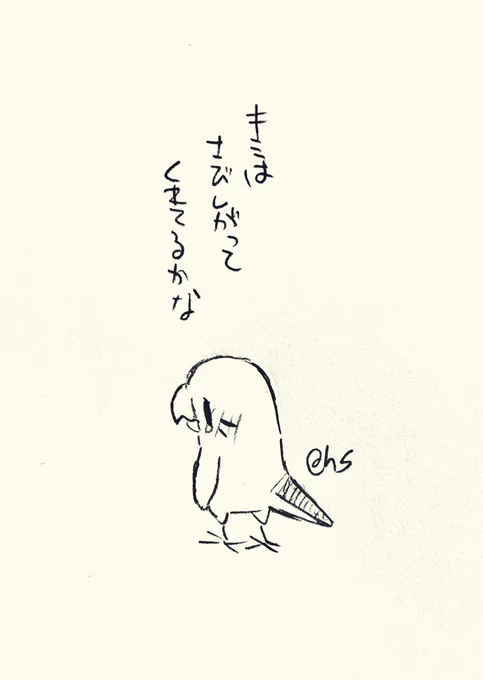 キミは
さびしがって
くれてるかな
@hs